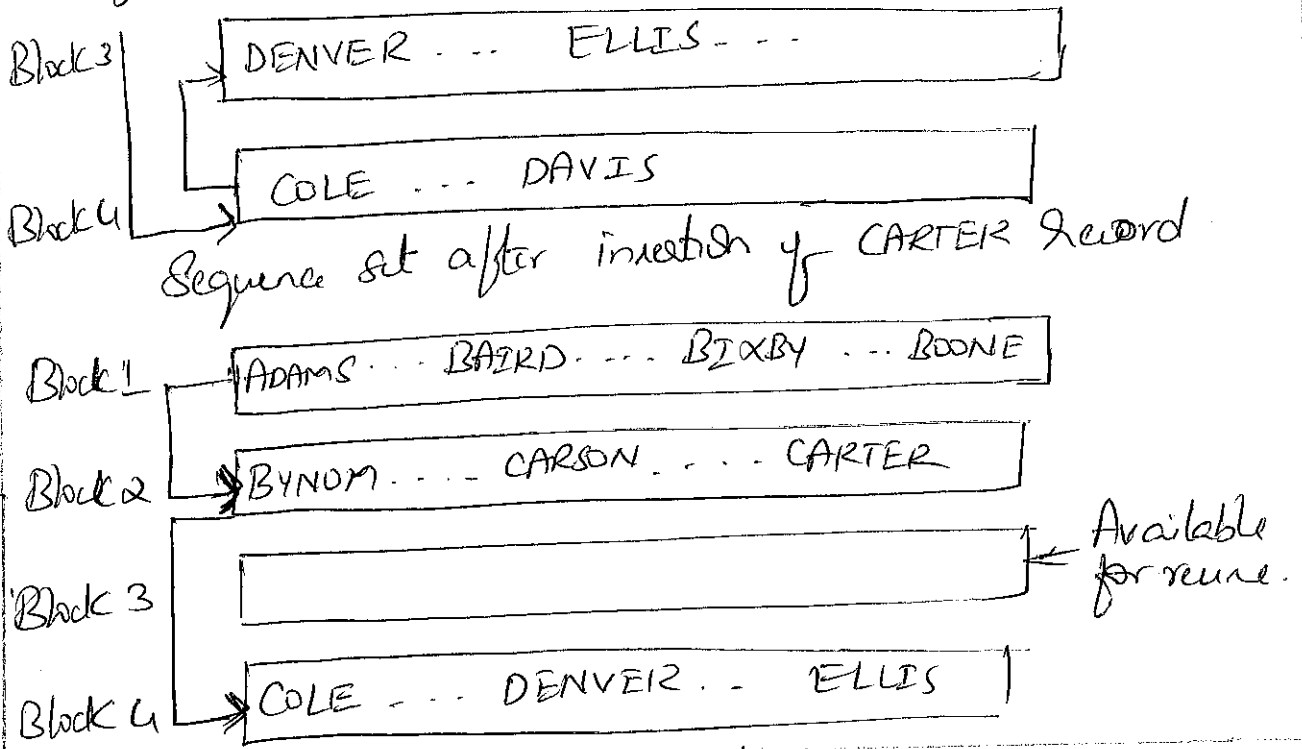 Block 3 DENVER ... ELLIS ...
Block 4 COLE ... DAVIS
Sequence set after insertion of CARTER record
Block 1 ADAMS ... BAIRD .... BIXBY ... BOONE
Block 2 BYNUM .... CARSON .... CARTER
Block 3
Available
for reuse.
Block 4 COLE ... DENVER .. ELLIS